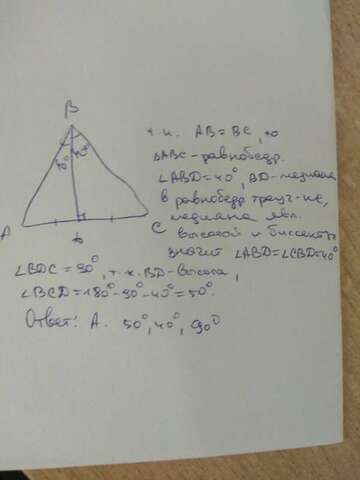 B
40° 40°
A
D
C
т.к. AB = BC, то
ΔABC - равнобедр.
∠ABD = 40°, BD - медиана
в равнобедр треуг-ке,
медиана явл.
высотой и биссектр
значит ∠ABD = ∠CBD = 40°
∠BDC = 90°, т.к. BD - высота,
∠BCD = 180° - 90° - 40° = 50°.
Ответ: А. 50°, 40°, 90°